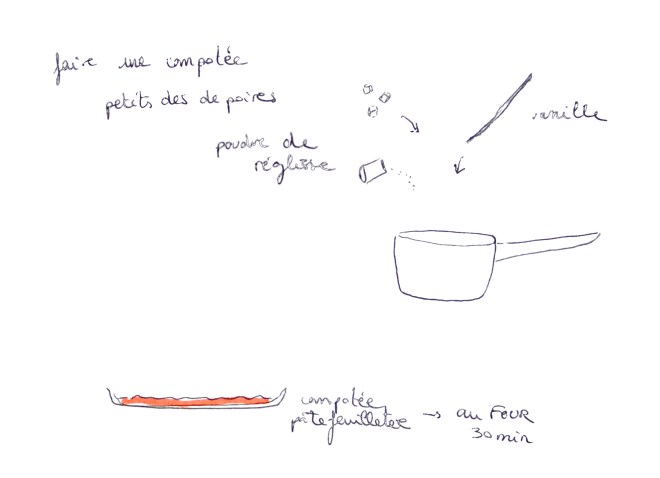 faire une compotée
petits des de poires
vanille
poudre de
réglisse
compotée
pâte feuilletée → au FOUR
30 min